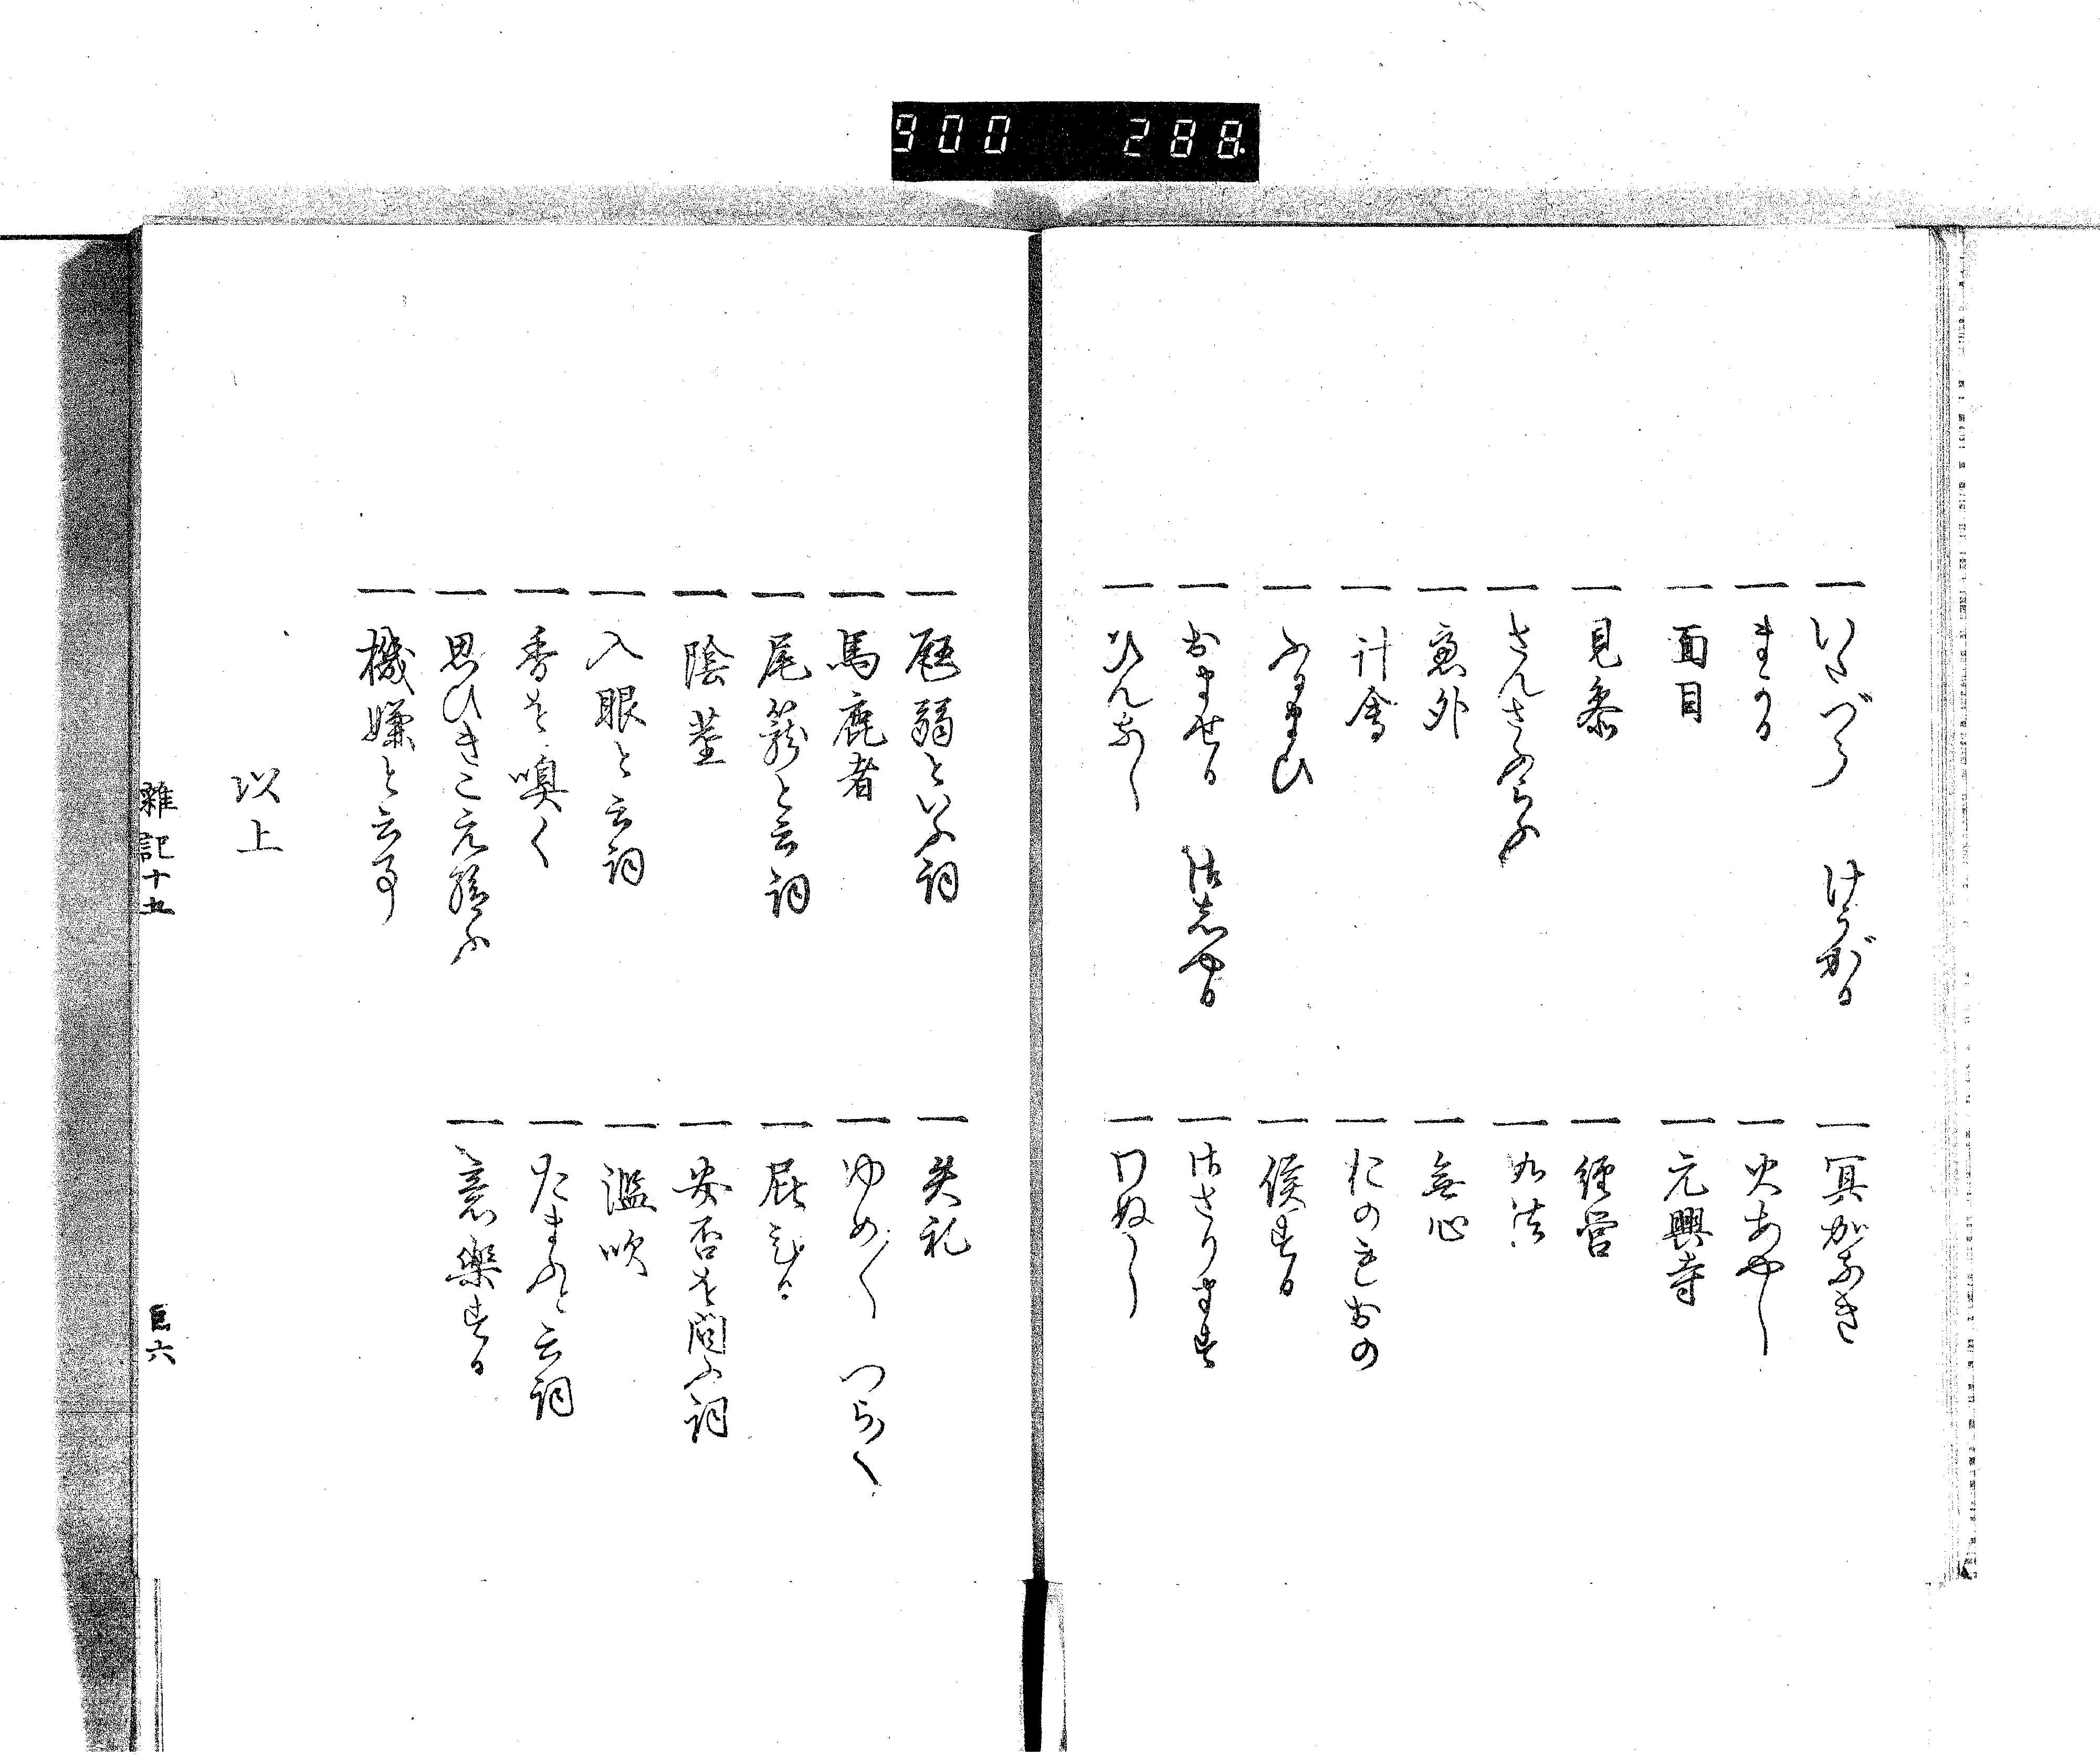 900 288
一いたづら けうがる
一冥加なき
一まかる
一火あやし
一面目
一元興寺
一見参
一經営
一さんさふらふ
一九法
一意外
一無心
一計會
一たのもしおの
一ふるまひ
一候する
一おまする
一ござります
一びんなし
一口ぬし
一尫弱といふ詞
一失礼
一馬鹿者
一ゆめ〱 つら〱
一尾籠と云詞
一屁ひる
一陰莖
一安否を問ふ詞
一入眼と云詞
一濫吹
一香を嗅く
一たまふと云詞
一思ひきこえ給ふ
一意樂する
一機嫌と云事
以上
雜記十五
目六